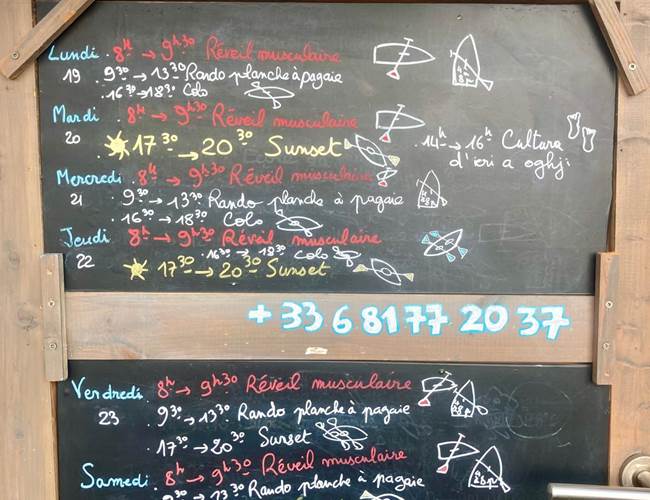 Lundi 8h → 9h30 Réveil musculaire
19 . 9 30 → 13 30 Rando planche à pagaie
. 16 30 → 18 30 Colo
Mardi . 8h → 9h30 Réveil musculaire
20 . 17 30 → 20 30 Sunset . 14h → 16h Cultura
d'ieri a oghji
Mercredi . 8h → 9h30 Réveil musculaire
21 . 9 30 → 13 30 Rando planche à pagaie
. 16 30 → 18 30 Colo
Jeudi 8h → 9h30 Réveil musculaire
22 . 16 30 → 18 30 Colo
. 17 30 → 20 30 Sunset
+ 33 6 81 77 20 37
Vendredi 8h → 9h30 Réveil musculaire
23 . 9 30 → 13 30 Rando planche à pagaie
. 17 30 → 20 30 Sunset
Samedi . 8h → 9h30 Réveil musculaire
. 9 30 → 13 30 Rando planche à pagaie